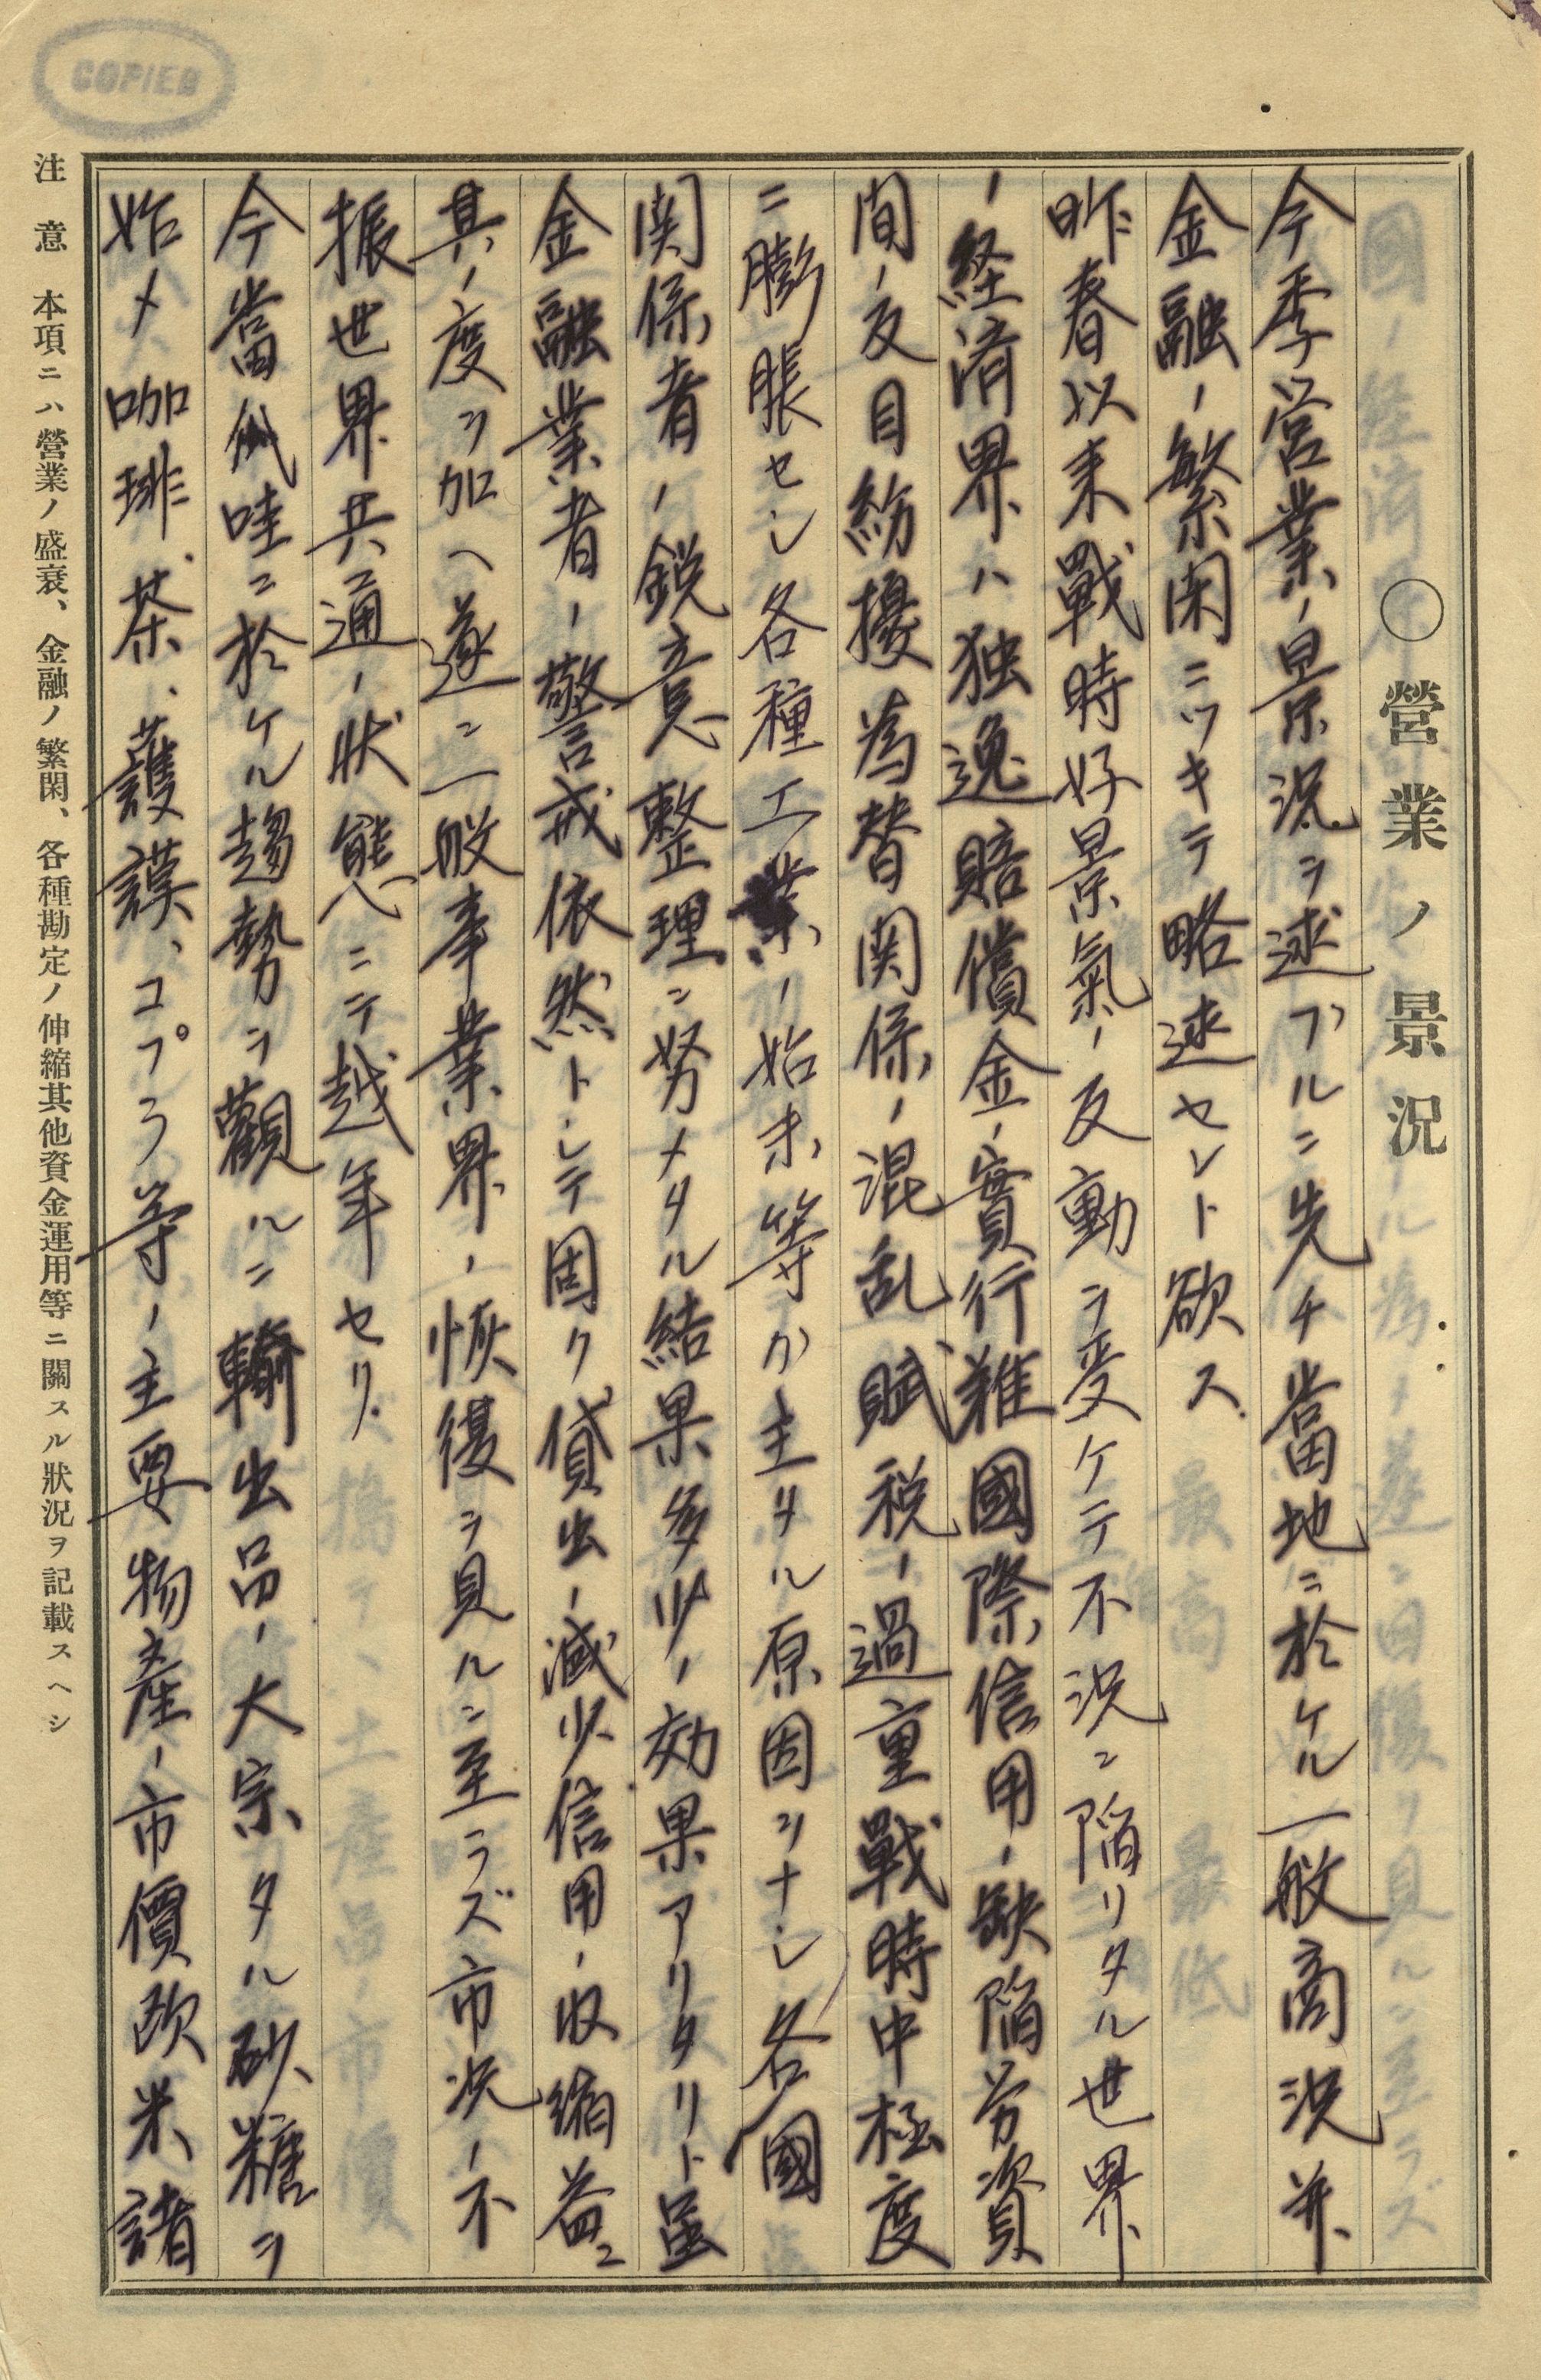 COPIED
○營業ノ景況
今季営業ノ景況ヲ述ブルニ先チ當地ニ於ケル一般商況并
金融ノ繁閑ニツキテ略述セント欲ス
昨春以来戰時好景氣ノ反動ヲ受ケテ不況ニ陥リタル世界
ノ経済界ハ独逸賠償金ノ實行難國際信用ノ缺陥労資
间ノ反目紛擾為替関係ノ混乱賦税ノ過重戰時中極度
ニ膨脹セシ各種工業ノ始末等カ主タル原因ヲナシ各國
関係者ノ鋭意整理ニ努メタル結果多少ノ効果アリタリト虽
金融業者ノ警戒依然トシテ固ク貸出ノ減少信用ノ収縮益ニ
其ノ度ヲ加ヘ遂ニ一般事業界ノ恢復ヲ見ルニ至ラズ市況ノ不
振世界共通ノ状態ニテ越年セリ
今當爪哇ニ於ケル趨勢ヲ觀ルニ輸出品ノ大宗タル砂糖ヲ
始メ咖琲、茶、護謨、コプラ等ノ主要物産ノ市價欧米諸
注意 本項ニハ營業ノ盛衰、金融ノ繁閑、各種勘定ノ伸縮其他資金運用等ニ關スル狀況ヲ記載スヘシ